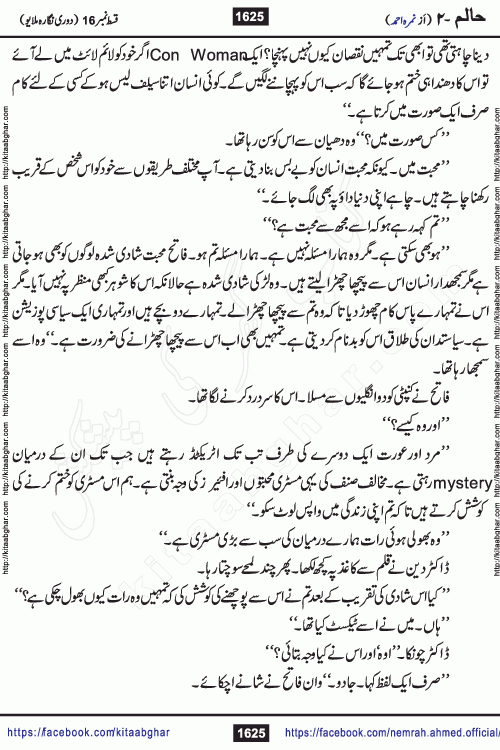 حالم -۲ (از نمرہ احمد)
1625
قسط نمبر 16 (دوری نگارہ ملایو)
دینا چاہتی تھی تو ابھی تک تمہیں نقصان کیوں نہیں پہنچا؟ ایک Con Woman اگر خود کو لائم لائٹ میں لے آئے
تو اس کا دھندا ہی ختم ہو جائے گا کہ سب اس کو پہچاننے لگیں گے۔ کوئی انسان اتنا سیلف لیس ہو کے کسی کے لئے کام
صرف ایک صورت میں کرتا ہے۔‘‘
’’کس صورت میں؟‘‘ وہ دھیان سے اس کو سن رہا تھا۔
’’محبت میں۔ کیونکہ محبت انسان کو بے بس بنا دیتی ہے۔ آپ مختلف طریقوں سے خود کو اس شخص کے قریب
رکھنا چاہتے ہیں۔ چاہے اپنی دنیا داؤ پہ بھی لگ جائے۔‘‘
’’تم کہہ رہے ہو کہ اسے مجھ سے محبت ہے؟‘‘
’’ہو بھی سکتی ہے۔ مگر وہ ہمارا مسئلہ نہیں ہے۔ ہمارا مسئلہ تم ہو۔ فاتح محبت شادی شدہ لوگوں کو بھی ہو جاتی
ہے مگر سمجھدار انسان اس سے پیچھا چھڑا لیتے ہیں۔ وہ لڑکی شادی شدہ ہے حالانکہ اس کا شوہر کبھی منظر پہ نہیں آیا۔ مگر
اس نے تمہارے پاس کام چھوڑ دیا تاکہ وہ تم سے پیچھا چھڑا لے۔ تمہارے دو بچے ہیں اور تمہاری ایک سیاسی پوزیشن
ہے۔ سیاستدان کی طلاق اس کو بدنام کر دیتی ہے۔ تمہیں بھی اب اس سے پیچھا چھڑانے کی ضرورت ہے۔‘‘ وہ اسے
سمجھا رہا تھا۔
فاتح نے کنپٹی کو دو انگلیوں سے مسلا۔ اس کا سر درد کرنے لگا تھا۔
’’اور وہ کیسے؟‘‘
’’مرد اور عورت ایک دوسرے کی طرف تب تک اٹریکٹڈ رہتے ہیں جب تک ان کے درمیان
mystery رہتی ہے۔ مخالف صنف کی یہی مسٹری محبتوں اور افئیرز کی وجہ بنتی ہے۔ ہم اس مسٹری کو ختم کرنے کی
کوشش کرتے ہیں تاکہ تم اپنی زندگی میں واپس لوٹ سکو۔‘‘
’’وہ بھولی ہوئی رات ہمارے درمیان کی سب سے بڑی مسٹری ہے۔‘‘
ڈاکٹر دین نے قلم سے کاغذ پہ کچھ لکھا۔ پھر چند لمحے سوچتا رہا۔
’’کیا اس شادی کی تقریب کے بعد تم نے اس سے پوچھنے کی کوشش کی کہ تمہیں وہ رات کیوں بھول چکی ہے؟‘‘
’’ہاں۔ میں نے اسے ٹیکسٹ کیا تھا۔‘‘
ڈاکٹر چونکا۔ ’’اوہ‘ اور اس نے کیا وجہ بتائی؟‘‘
’’صرف ایک لفظ کہا۔ جادو۔‘‘ وان فاتح نے شانے اچکائے۔
https://facebook.com/kitaabghar
1625
https://facebook.com/nemrah.ahmed.official/
http://kitaabghar.com http://kitaabghar.com http://kitaabghar.com http://kitaabghar.com
http://kitaabghar.com http://kitaabghar.com http://kitaabghar.com http://kitaabghar.com